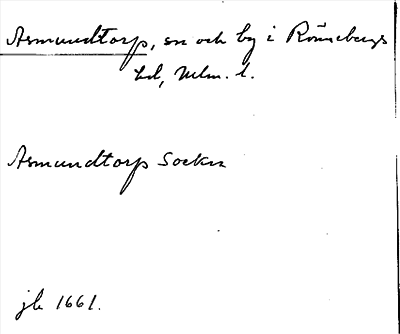 Asmundtorp, sn och by i Rönnebergs
hd, Mlm. l.
Asmundtorp Sockn
jb 1661.